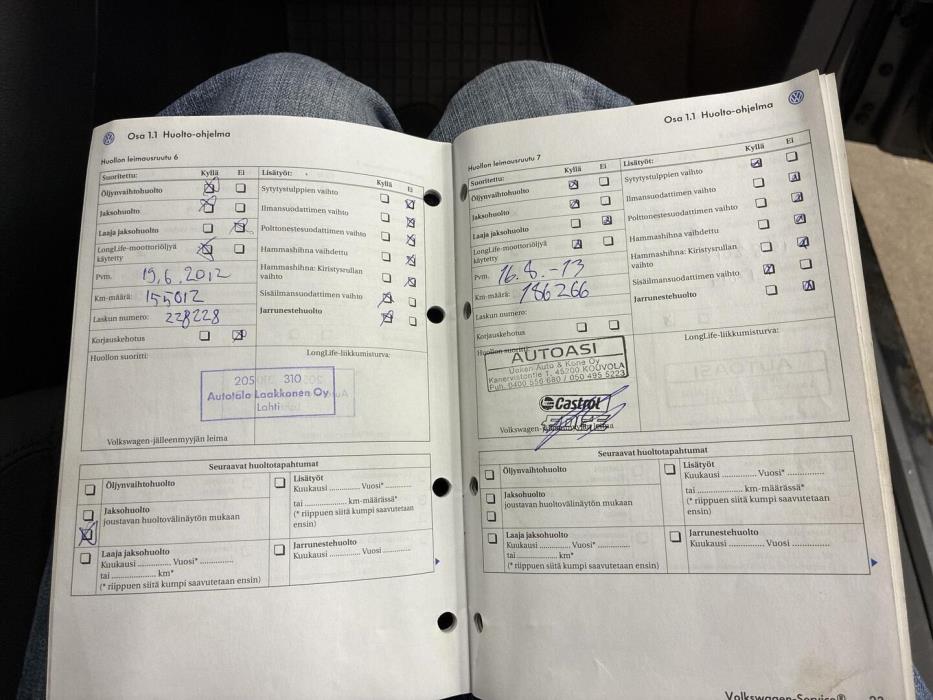 Osa 1.1 Huolto-ohjelma
Huollon leimausruutu 6
Suoritettu: Kyllä Ei
Öljynvaihtohuolto
Jaksohuolto
Laaja jaksohuolto
LongLife-moottoriöljyä
käytetty
Pvm. 19.6.2012
Km-määrä: 155012
Laskun numero: 228228
Korjauskehotus
Huollon suoritti:
Lisätyöt: Kyllä Ei
Sytytystulppien vaihto
Ilmansuodattimen vaihto
Polttonestesuodattimen vaihto
Hammashihna vaihdettu
Hammashihna: Kiristysrullan
vaihto
Sisäilmansuodattimen vaihto
Jarrunestehuolto
LongLife-liikkumisturva:
205 310
Autotalo Laakkonen Oy
Lahti
Volkswagen-jälleenmyyjän leima
Seuraavat huoltotapahtumat
Öljynvaihtohuolto
Jaksohuolto
joustavan huoltovälinäytön mukaan
Laaja jaksohuolto
Kuukausi .............. Vuosi* ..............
tai .................... km*
(* riippuen siitä kumpi saavutetaan ensin)
Lisätyöt
Kuukausi .............. Vuosi* ..............
tai .................... km-määrässä*
(* riippuen siitä kumpi saavutetaan
ensin)
Jarrunestehuolto
Kuukausi .............. Vuosi ..............
Osa 1.1 Huolto-ohjelma
Huollon leimausruutu 7
Suoritettu: Kyllä Ei
Öljynvaihtohuolto
Jaksohuolto
Laaja jaksohuolto
LongLife-moottoriöljyä
käytetty
Pvm. 16.8.-13
Km-määrä: 186266
Laskun numero:
Korjauskehotus
Huollon suoritti:
Lisätyöt: Kyllä Ei
Sytytystulppien vaihto
Ilmansuodattimen vaihto
Polttonestesuodattimen vaihto
Hammashihna vaihdettu
Hammashihna: Kiristysrullan
vaihto
Sisäilmansuodattimen vaihto
Jarrunestehuolto
LongLife-liikkumisturva:
AUTOASI
Auto & Kone Oy
Kanervistontie 1, 45200 KOUVOLA
Puh. 0400 556 680 / 050 495 5223
Castrol
EDGE
Volkswagen-jälleenmyyjän leima
Seuraavat huoltotapahtumat
Öljynvaihtohuolto
Jaksohuolto
joustavan huoltovälinäytön mukaan
Laaja jaksohuolto
Kuukausi .............. Vuosi* ..............
tai .................... km*
(* riippuen siitä kumpi saavutetaan ensin)
Lisätyöt
Kuukausi .............. Vuosi* ..............
tai .................... km-määrässä*
(* riippuen siitä kumpi saavutetaan
ensin)
Jarrunestehuolto
Kuukausi .............. Vuosi ..............
Volkswagen-Service®